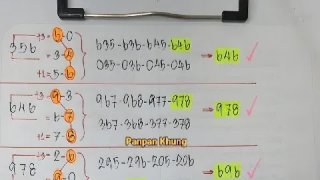 +3 = 6-0
356 = 3-4 635-636-645-646 → 646
+1 = 5-6 035-036-045-046
+3 = 9-8
646 = 6-7 967-968-977-978 → 978
+1 = 7-8 367-368-377-378
Panpan Khung
+3 = 2-6
978 295-296-205-206 → 696